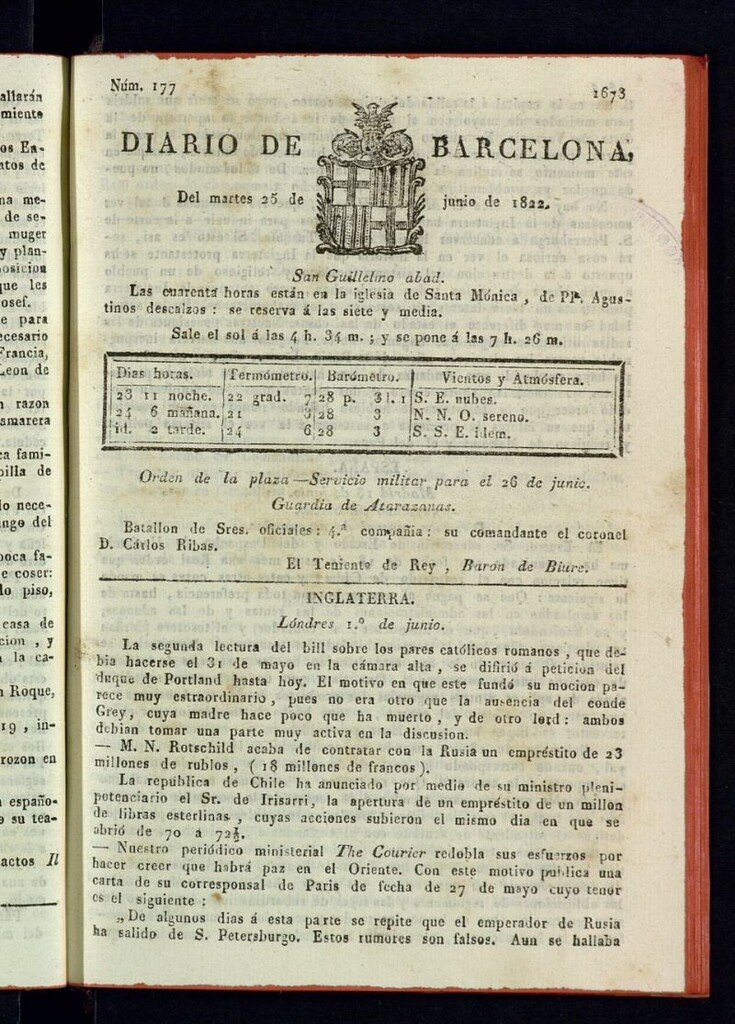 allarán
miento
os En-
atos de
na me-
de se-
muger
y plan-
posicion
que les
osef.
e para
ecesario
Francia,
Leon de
n razon
amarera
ca fami-
pilla de
lo nece-
ngo del
poca fa-
e coser:
lo piso,
casa de
cion , y
a la ca-
n Roque,
19 , in-
rozon en
españo-
o su tea-
actos Il
Núm. 177
1673
DIARIO DE BARCELONA,
Del martes 25 de junio de 1822.
San Guillelmo abad.
Las cuarenta horas están en la iglesia de Santa Mónica , de PP. Agus-
tinos descalzos : se reserva á las siete y media.
Sale el sol á las 4 h. 34 m. ; y se pone á las 7 h. 26 m.
Dias horas. Termómetro. Barómetro. Vientos y Atmósfera.
23 11 noche. 22 grad. 7 28 p. 3 l. 1 S. E. nubes.
24 6 mañana. 21 3 28 3 N. N. O. sereno.
id. 2 tarde. 24 6 28 3 S. S. E. idem.
Orden de la plaza —Servicio militar para el 26 de junio.
Guardia de Atarazanas.
Batallon de Sres. oficiales : 4.ª compañia : su comandante el coronel
D. Cárlos Ribas.
El Teniente de Rey , Baron de Biure.
INGLATERRA.
Lóndres 1.º de junio.
La segunda lectura del bill sobre los pares católicos romanos , que de-
bia hacerse el 31 de mayo en la cámara alta , se difirió á peticion del
duque de Portland hasta hoy. El motivo en que este fundó su mocion pa-
rece muy estraordinario , pues no era otro que la ausencia del conde
Grey, cuya madre hace poco que ha muerto , y de otro lord : ambos
debian tomar una parte muy activa en la discusion.
— M. N. Rotschild acaba de contratar con la Rusia un empréstito de 23
millones de rublos , ( 18 millones de francos ).
La república de Chile ha anunciado por medio de su ministro pleni-
potenciario el Sr. de Irisarri, la apertura de un empréstito de un millon
de libras esterlinas , cuyas acciones subieron el mismo dia en que se
abrió de 70 á 72½.
— Nuestro periódico ministerial The Courier redobla sus esfuerzos por
hacer creer que habrá paz en el Oriente. Con este motivo publica una
carta de su corresponsal de Paris de fecha de 27 de mayo cuyo tenor
es el siguiente :
„De algunos dias á esta parte se repite que el emperador de Rusia
ha salido de S. Petersburgo. Estos rumores son falsos. Aun se hallaba